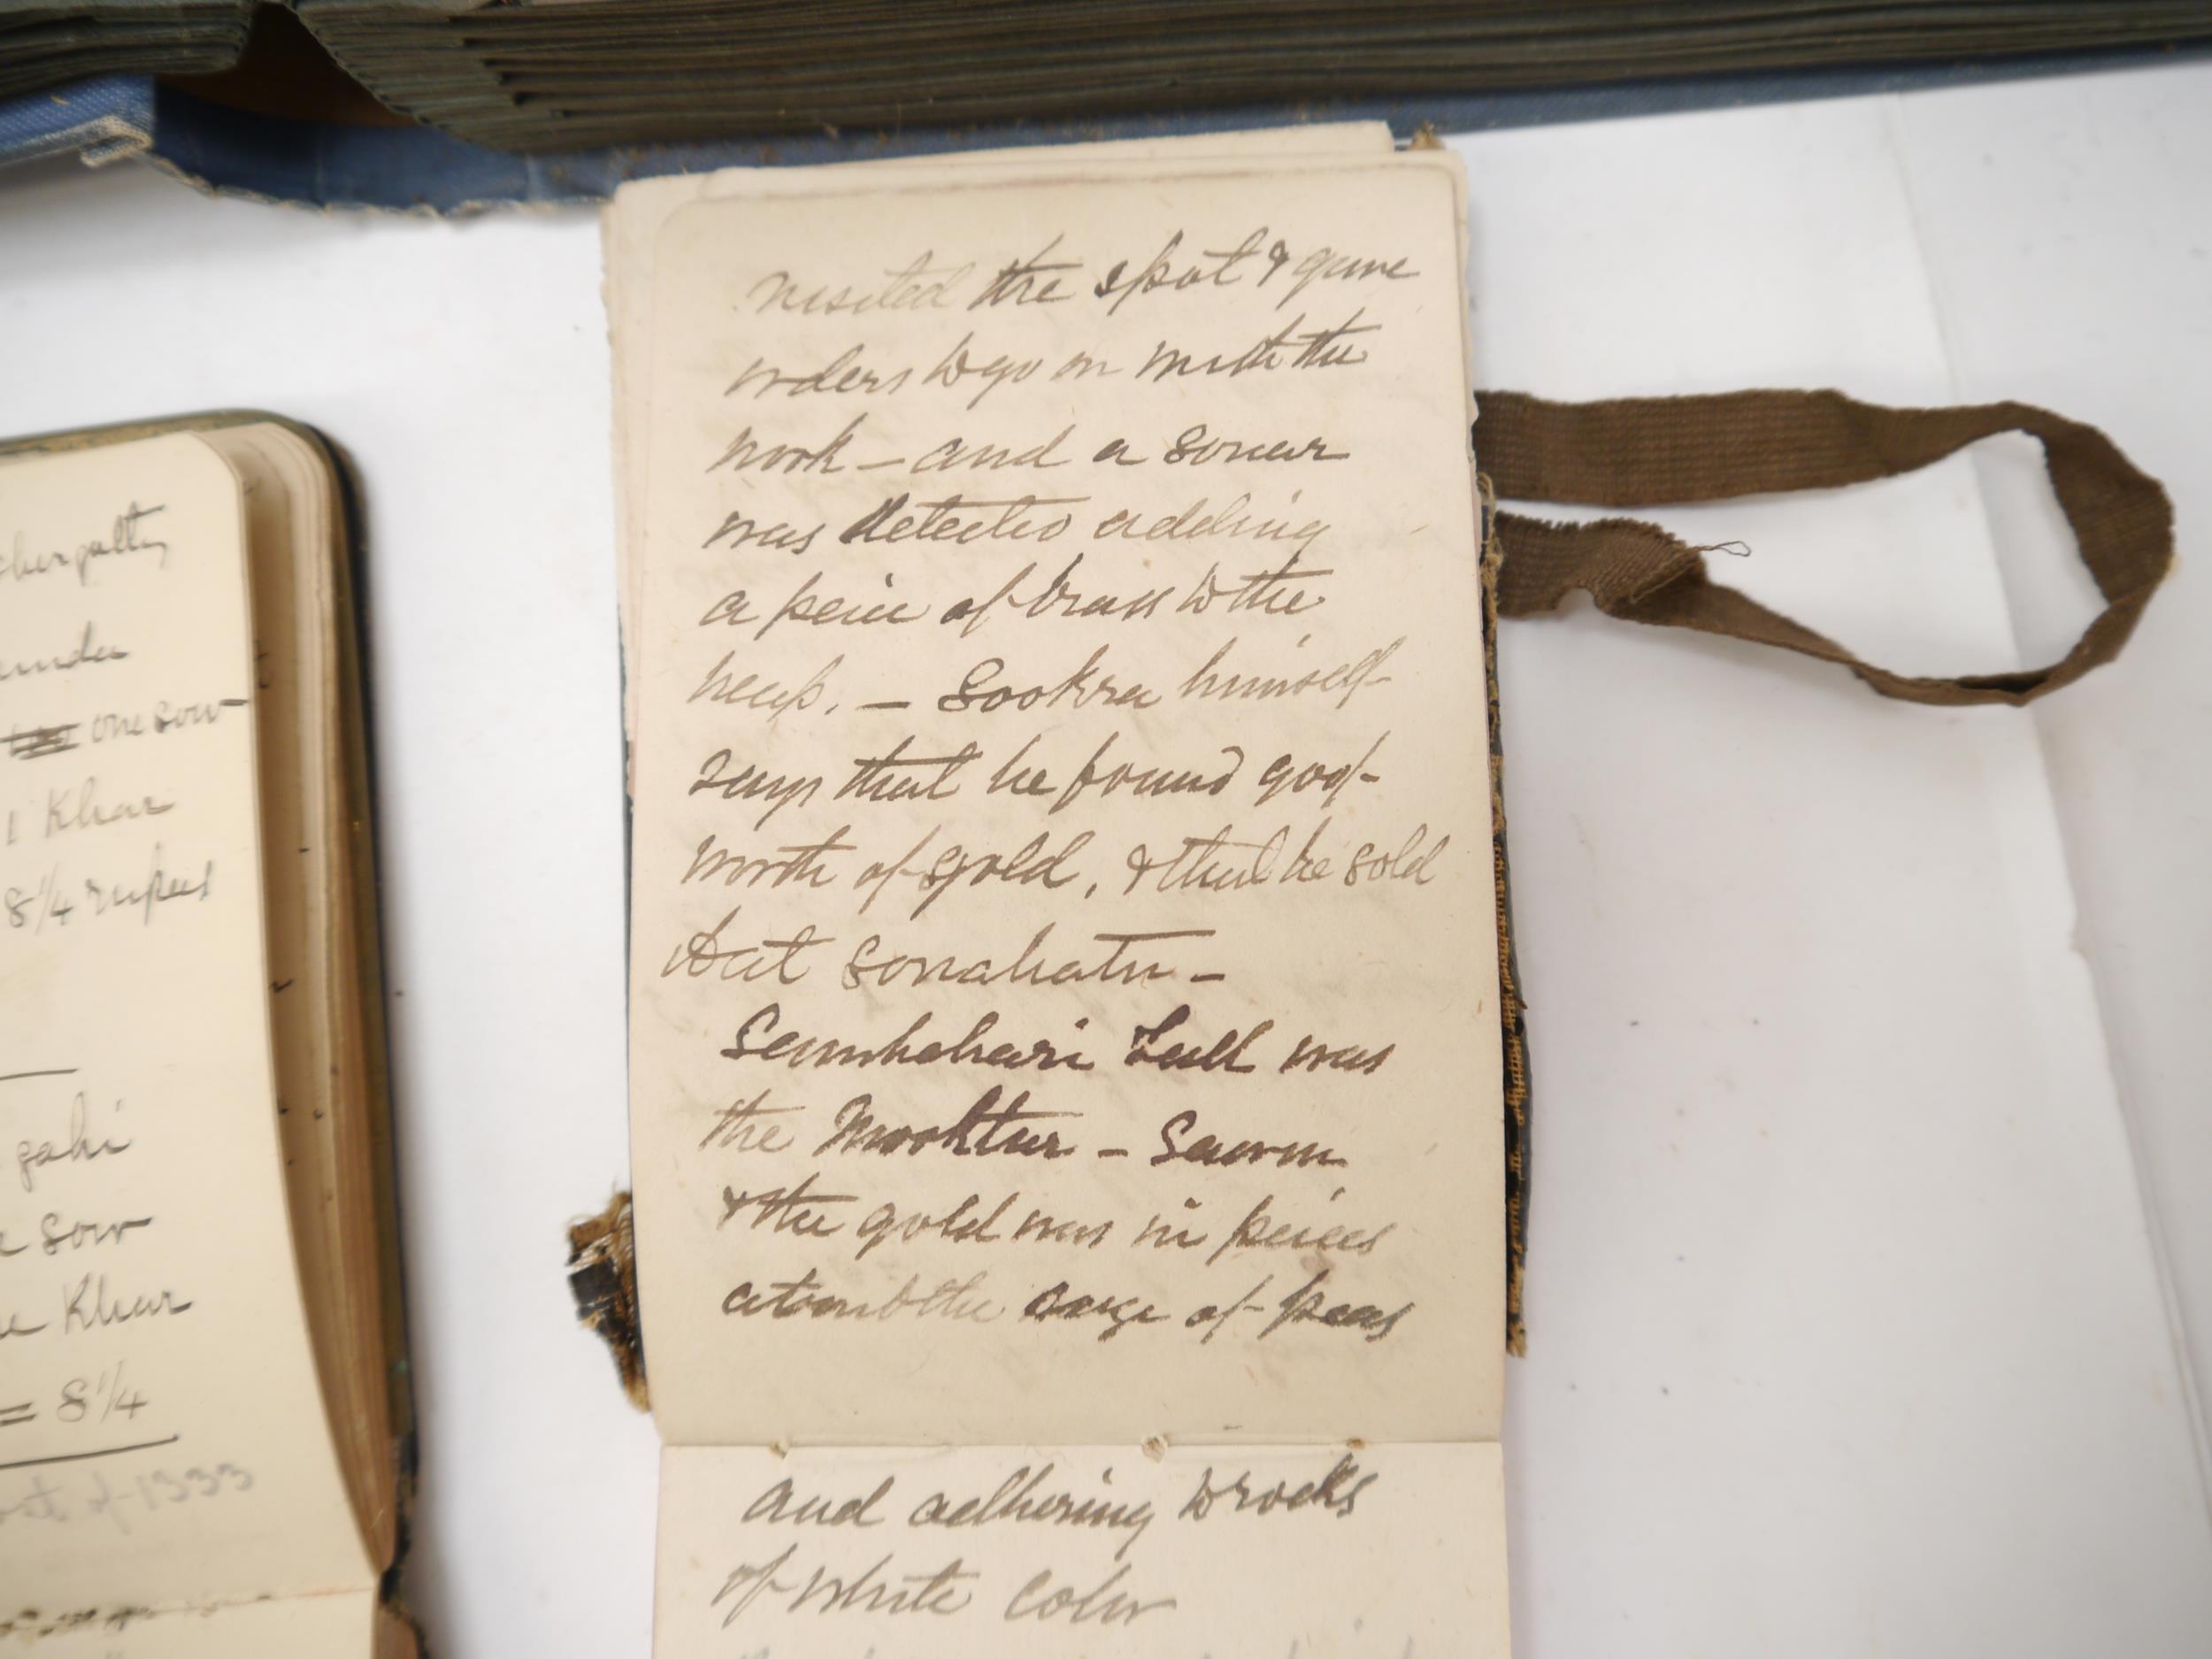 chergatty
one sow
1 Khar
8 1/4 rupees
gahi
sow
Khar
= 8 1/4
of 1333
visited the spot & gave
orders to go on with the
work - and a sonar
was detected adding
a peice of brass to the
heap. - Sookra himself
says that he found
worth of gold, & that he sold
it at Sonahatu -
the Mooktear -
& the gold was in peices
about the size of peas
and adhering to rocks
of white color